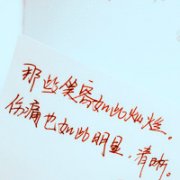 那些笑容如此灿烂。
伤痛也如此明显，清晰。